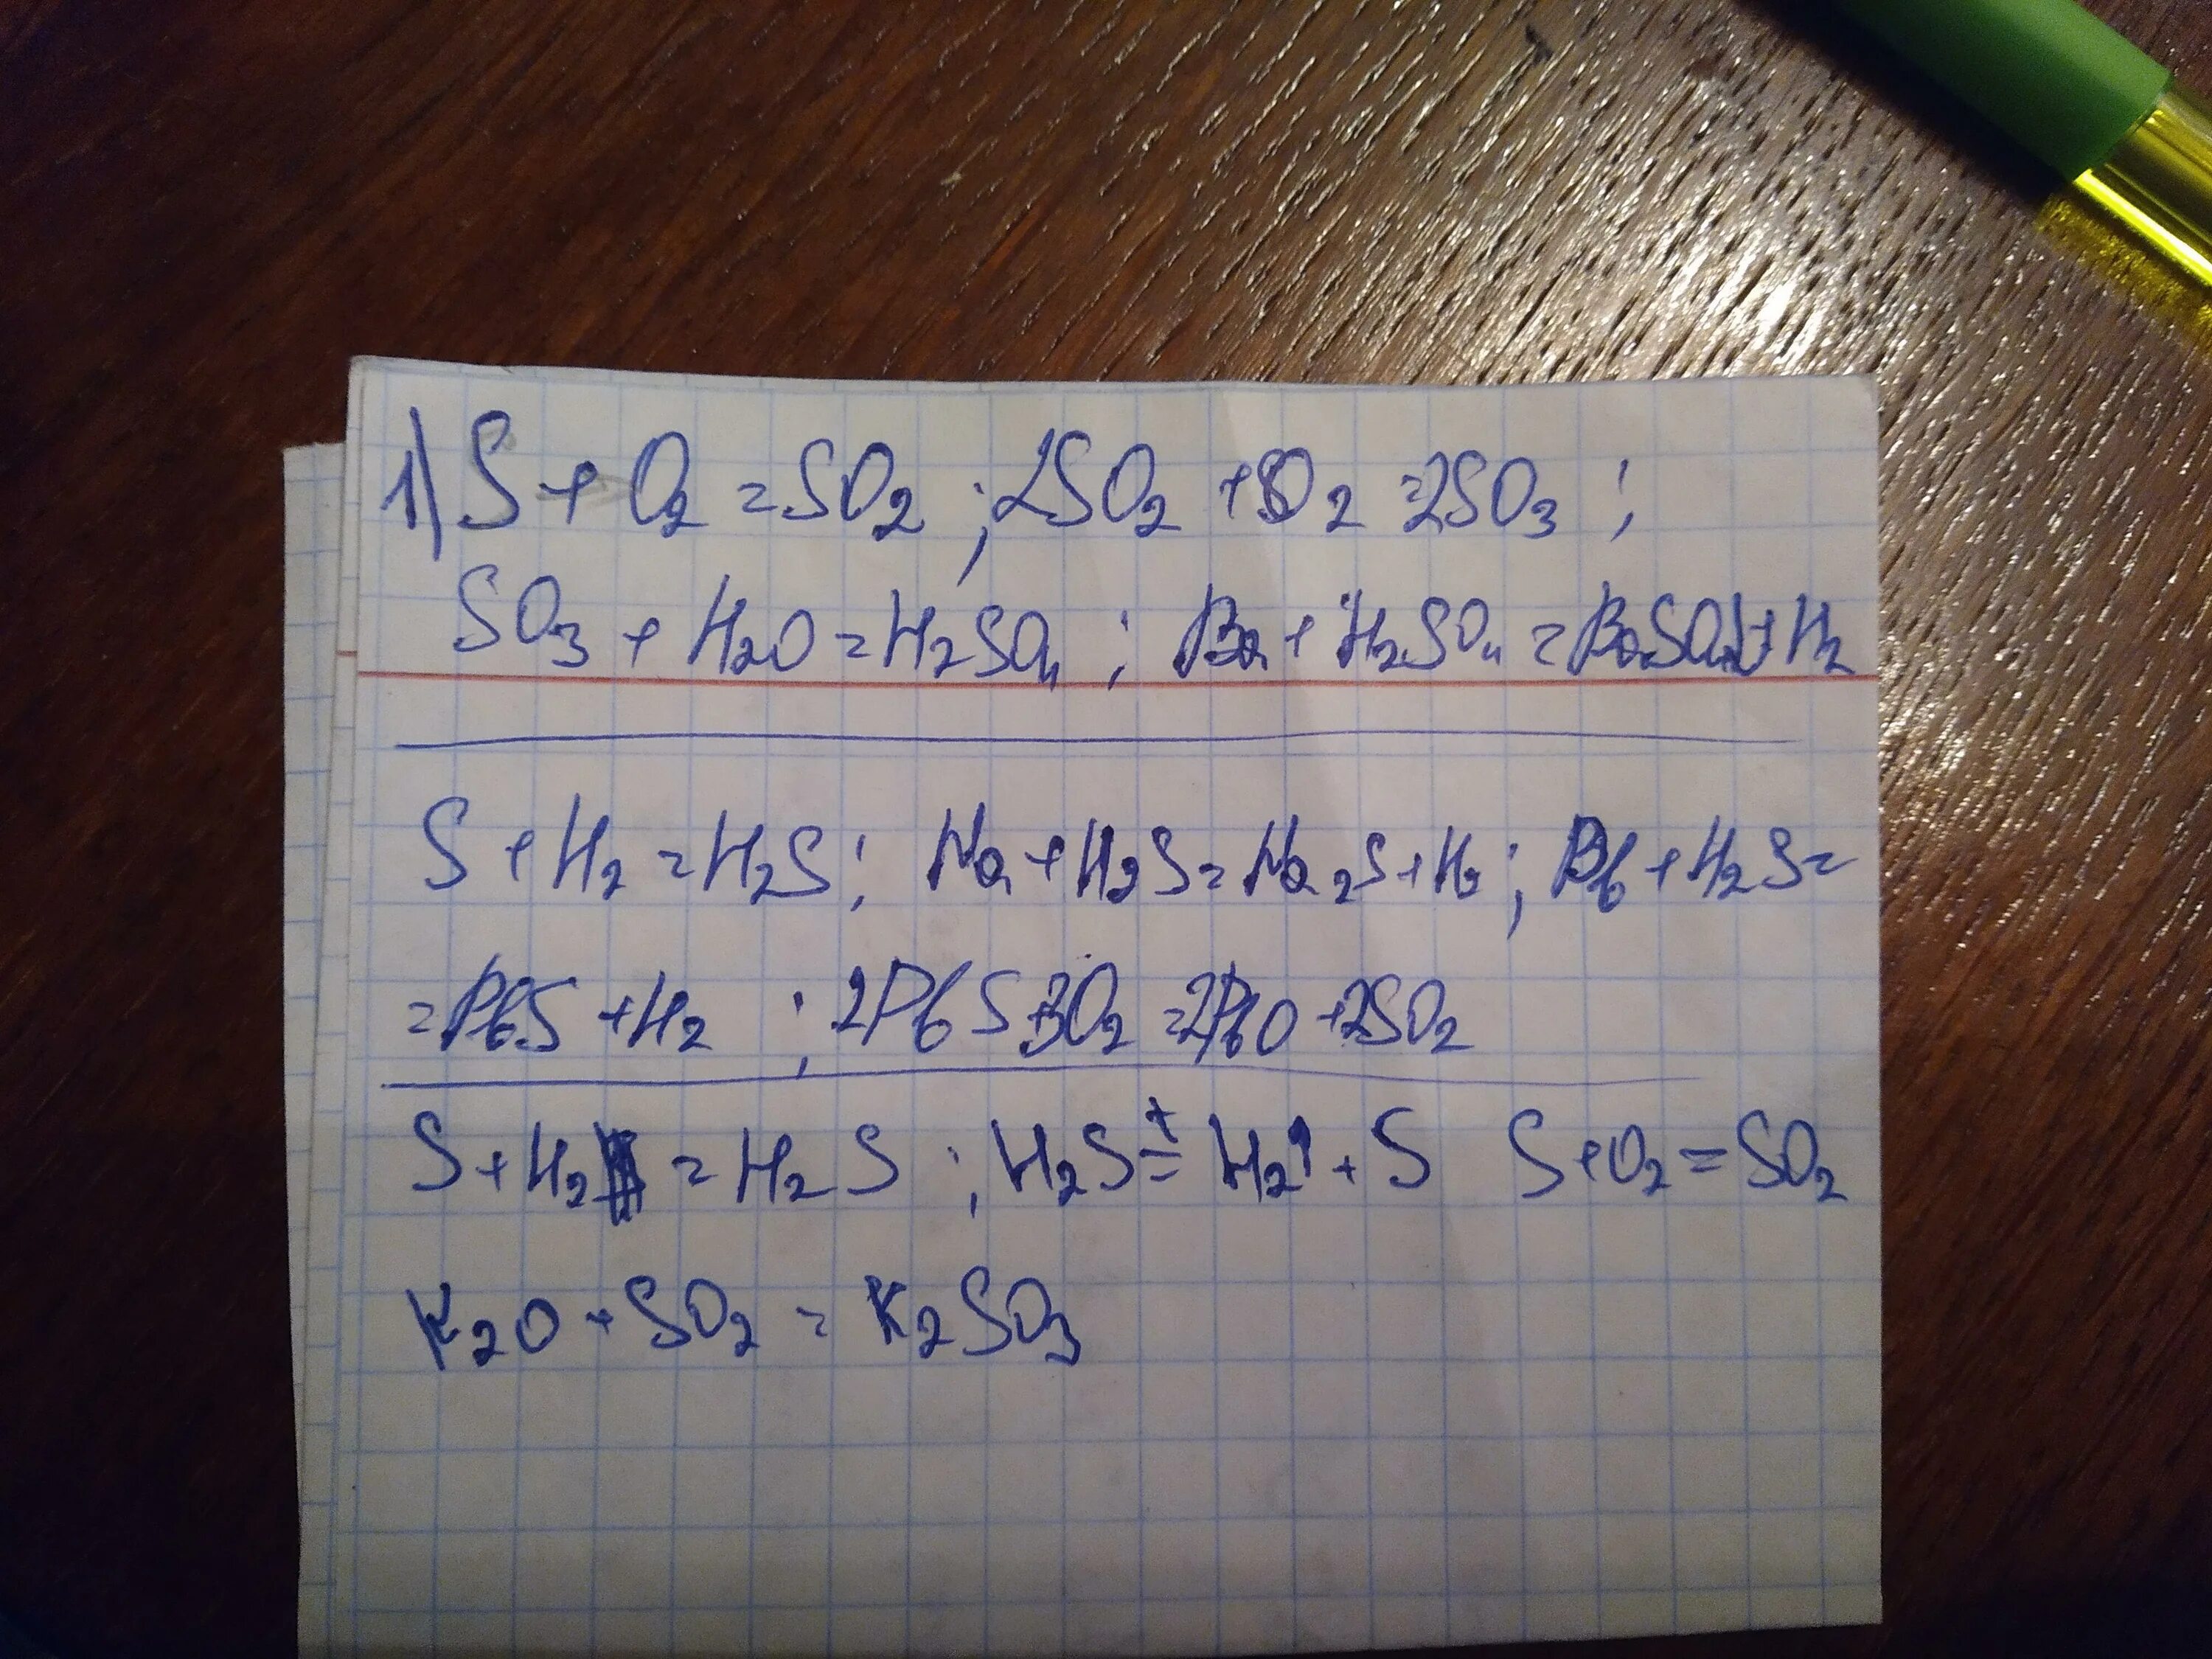 1) S + O₂ = SO₂ ; 2SO₂ + O₂ = 2SO₃ ;
SO₃ + H₂O = H₂SO₄ ; Ba + H₂SO₄ = BaSO₄↓ + H₂
S + H₂ = H₂S ; Na + H₂S = Na₂S + H₂ ; Pb + H₂S =
= PbS + H₂ ; 2PbS 3O₂ = 2PbO + 2SO₂
S + H₂ = H₂S ; H₂S =ᵗ H₂↑ + S S + O₂ = SO₂
K₂O + SO₂ = K₂SO₃